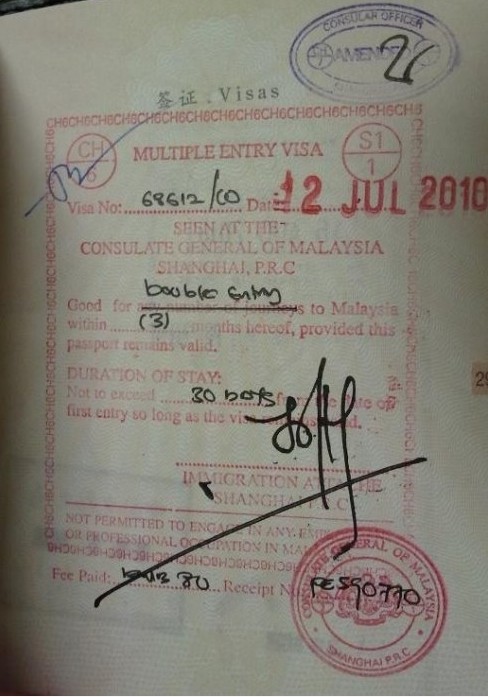 CONSULAR OFFICER
AMENDED
签证 . Visas
CH6CH6CH6CH6CH6CH6CH6CH6CH6CH6CH6CH6CH6
CH
6
MULTIPLE ENTRY VISA
S1
1
Visa No: 68612/CO Date 12 JUL 2010
SEEN AT THE
CONSULATE GENERAL OF MALAYSIA
SHANGHAI, P.R.C
Double Entry
Good for any number of journeys to Malaysia
within (3) months hereof, provided this
passport remains valid.
DURATION OF STAY:
Not to exceed 30 DAYS from the date of
first entry so long as the visa
29
IMMIGRATION ATTACHE
SHANGHAI P.R.C
NOT PERMITTED TO ENGAGE IN ANY
OR PROFESSIONAL OCCUPATION IN
Fee Paid: RMB 80 Receipt No
CONSULATE GENERAL OF MALAYSIA
SHANGHAI P.R.C